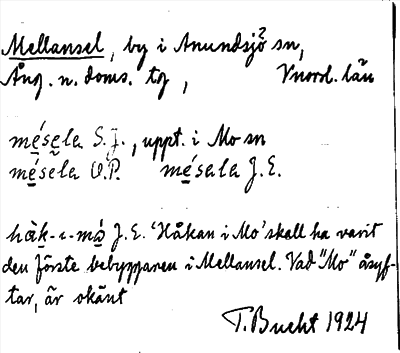 Mellansel, by i Anundsjö sn,
Ång. n. doms. tg, Vnorrl. län
mésela S.J., uppt. i Mo sn
mésela O.P. mésala J.E.
håk-ı-mó J.E. 'Håkan i Mo' skall ha varit
den förste bebyggaren i Mellansel. Vad "Mo" åsyf-
tar, är okänt
T. Bucht 1924